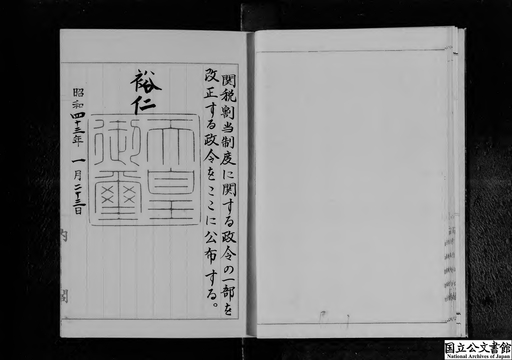 関税割当制度に関する政令の一部を
改正する政令をここに公布する。
裕仁
天皇
御璽
昭和四十三年一月二十三日
内閣
国立公文書館
National Archives of Japan